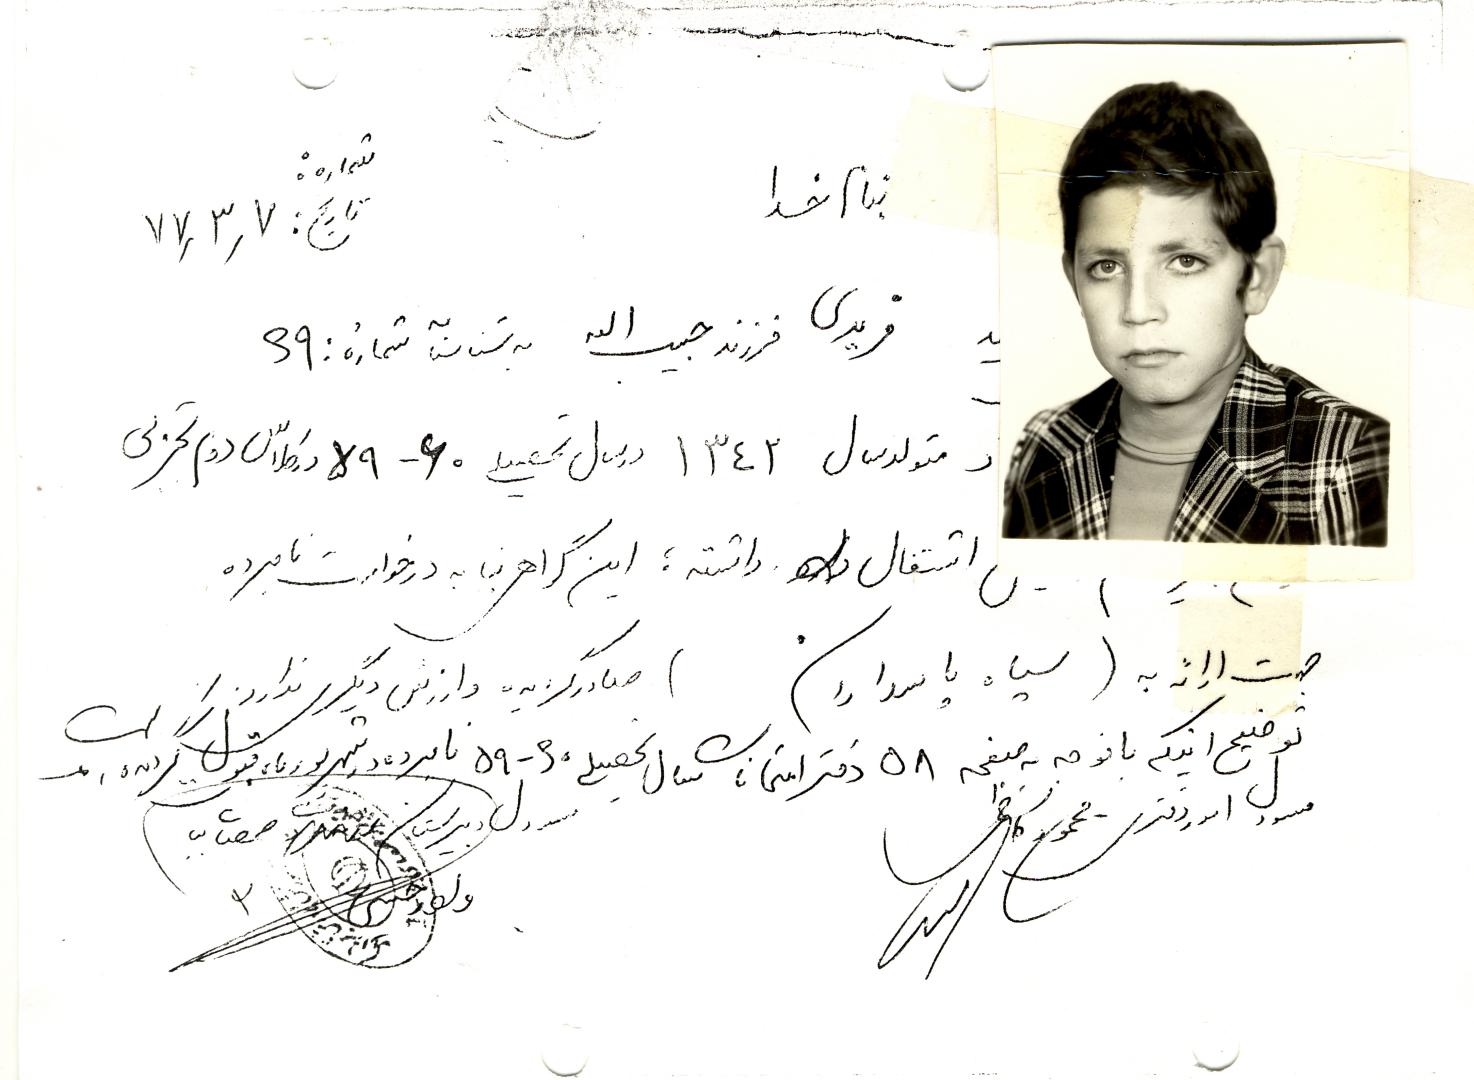 بنام خدا
شماره:
تاریخ: ۷۷٫۳٫۷
ید فریدی فرزند حبیب اله به شناسنامه شماره: ۶۹
متولد سال ۱۳۴۲ در سال تحصیلی ۶۰-۵۹ در کلاس دوم تجربی
اشتغال داشته؛ این گواهی بنا به درخواست نامبرده
جهت ارائه به (سپاه پاسداران) صادر گردیده و ارزش دیگری ندارد
توضیح اینکه با توجه به صفحه ۵۸ دفتر امتحانات سال تحصیلی ۶۰-۵۹ نامبرده در شهریور ماه قبول گردیده
مسئول امور دفتری محمود
مسئول دبیرستان